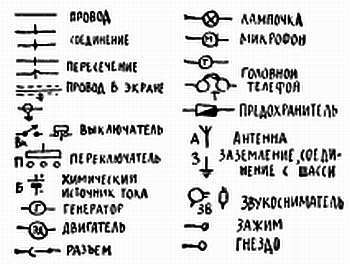 ПРОВОД
СОЕДИНЕНИЕ
ПЕРЕСЕЧЕНИЕ
ПРОВОД В ЭКРАНЕ
ВК ВЫКЛЮЧАТЕЛЬ
П ПЕРЕКЛЮЧАТЕЛЬ
Б ХИМИЧЕСКИЙ
ИСТОЧНИК ТОКА
Г ГЕНЕРАТОР
ДВИГАТЕЛЬ
РАЗЪЕМ
ЛАМПОЧКА
М МИКРОФОН
Т ГОЛОВНОЙ
ТЕЛЕФОН
ПРЕДОХРАНИТЕЛЬ
А АНТЕННА
З ЗАЗЕМЛЕНИЕ, СОЕДИ-
НЕНИЕ С ШАССИ
ЗВ ЗВУКОСНИМАТЕЛЬ
ЗАЖИМ
ГНЕЗДО